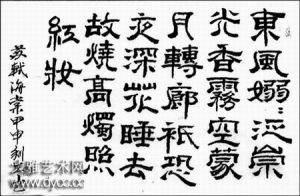 東風嫋〻泛崇
光香霧空蒙
月轉廊祇恐
夜深花睡去
故燒高燭照
紅妝
海棠甲申
艺术网